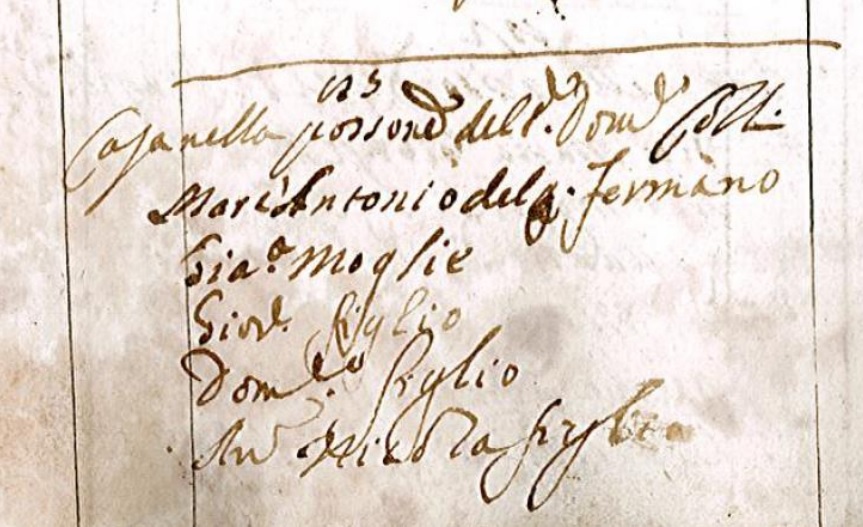 123
Casanella possed. dell'. Dom.
Marc'Antonio del q. Fermano
Gia.a Moglie
Giov. figlio
Dom.co figlio
An. Nicola figlia